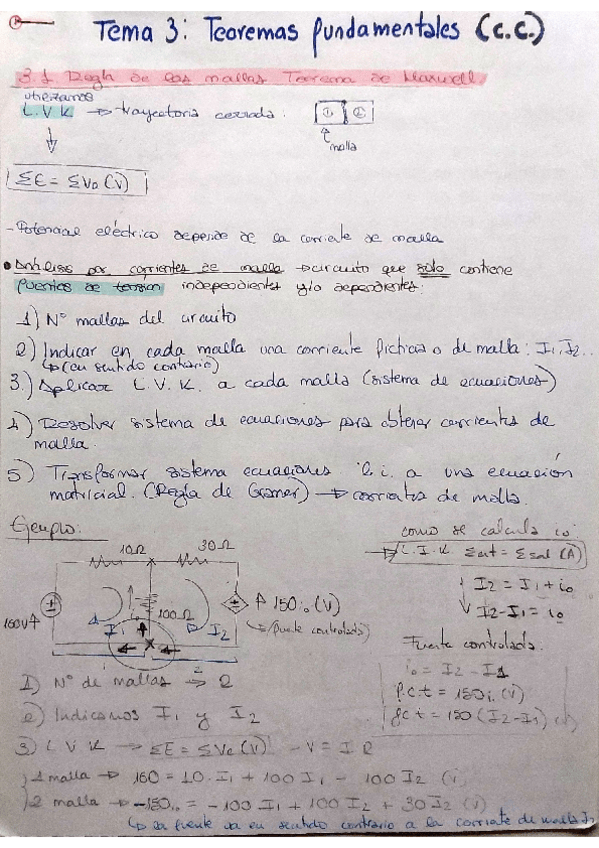 Tema 3: Teoremas fundamentales (c.c.)
3.1 Regla de las mallas Teorema de Maxwell
utilizamos
L.V.K → trayectoria cerrada: ① ②
malla
ΣE = ΣVo (V)
- Potencial eléctrico depende de la corriente de malla
• Análisis por corrientes de malla → circuito que solo contiene
fuentes de tension independientes y/o dependientes:
1) Nº mallas del circuito
2) Indicar en cada malla una corriente ficticia o de malla: I1, I2..
↳ (en sentido contrario)
3.) Aplicar L.V.K. a cada malla (sistema de ecuaciones)
4) Resolver sistema de ecuaciones para obtener corrientes de
malla.
5) Transformar sistema ecuaciones l.i. a una ecuación
matricial. (Regla de Gramer) → corrientes de malla.
Ejemplo:
como se calcula io:
→ L.I.K Σent = Σsal (A)
I2 = I1 + io
I2 - I1 = io
10Ω 30Ω
100Ω
160V
I1 I2
150io (V)
(fuente controlada)
Fuente controlada.
io = I2 - I1
f.c.t = 150io (V)
f.c.t = 150 (I2 - I1)
1) Nº de mallas → 2
2) Indicamos I1 y I2
3) L V K → ΣE = ΣVc (V) - V = I R
1 malla → 160 = 10·I1 + 100 I1 - 100 I2
2 malla → -150io = -100 I1 + 100 I2 + 30 I2 (V)
↳ la fuente va en sentido contrario a la corriente de malla I2